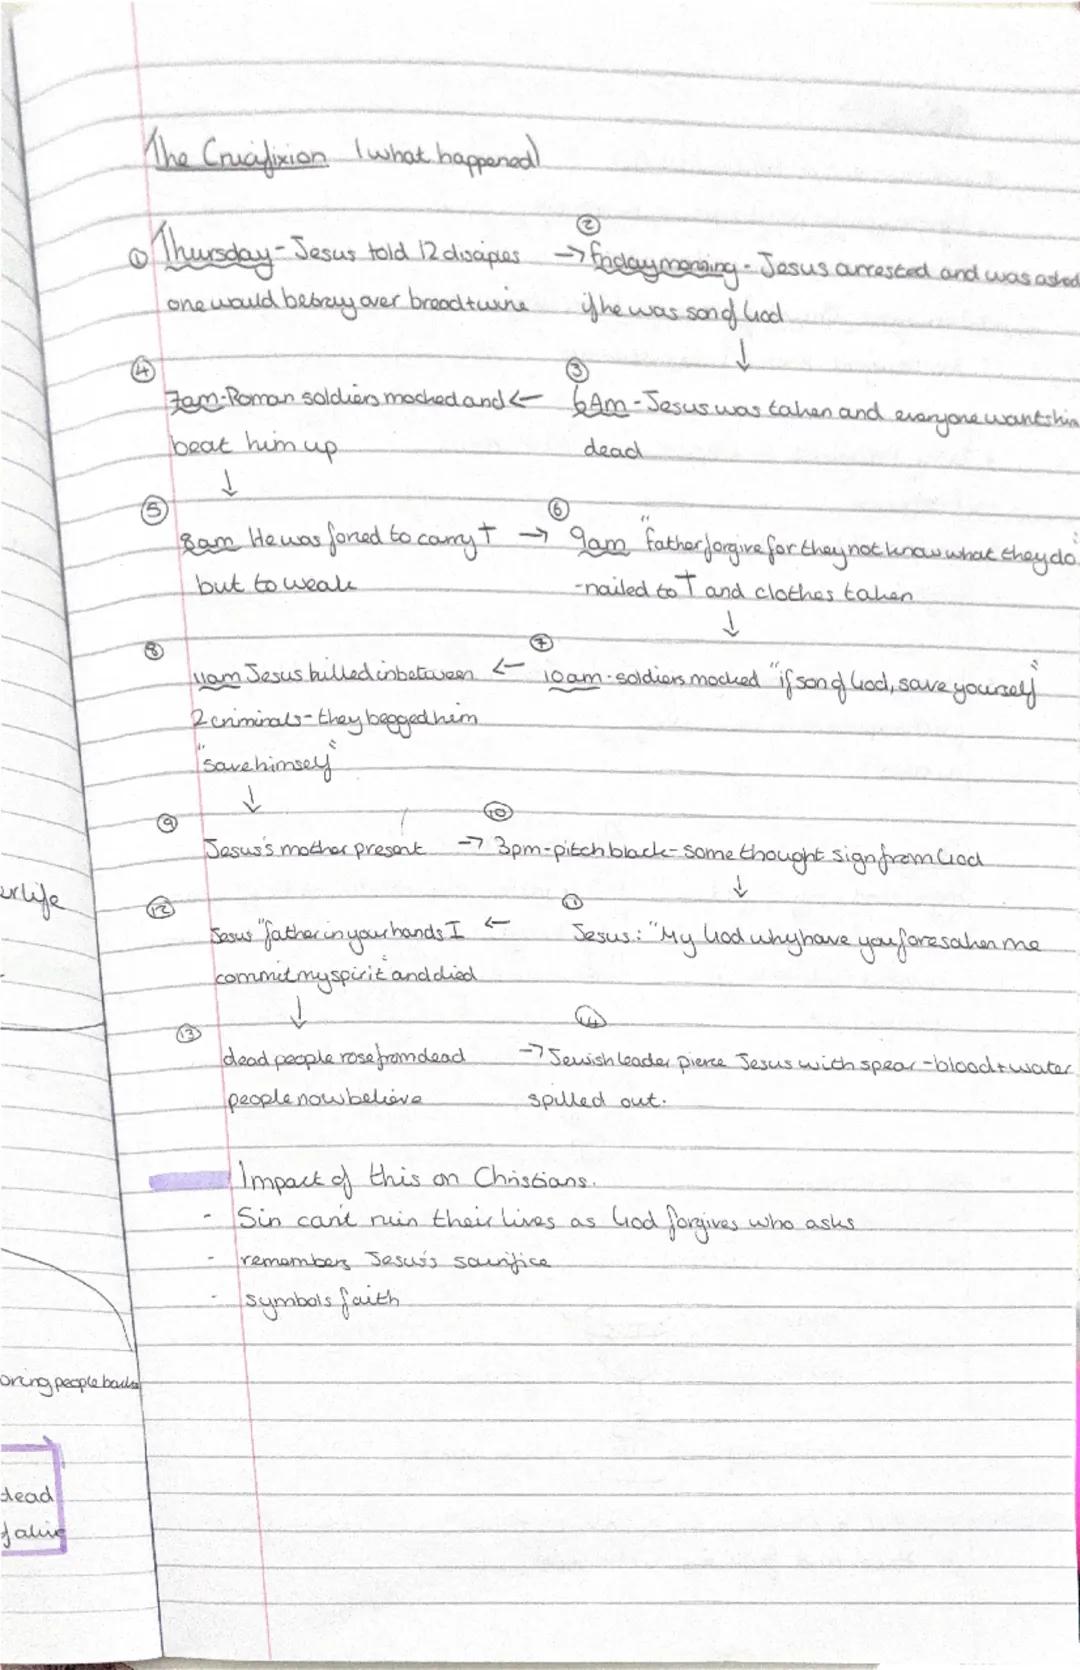 The Crucifixion (what happened)
① Thursday - Jesus told 12 disciples
one would betray over bread + wine
②
→ Friday morning - Jesus arrested and was asked
if he was son of God
↓
③
6Am - Jesus was taken and everyone wants him
dead
④
7am - Roman soldiers mocked and ←
beat him up
↓
⑤
8am He was forced to carry † →
but to weak
⑥
9am "father forgive for they not know what they do"
- nailed to † and clothes taken
↓
⑦
← 10am - soldiers mocked "if son of God, save yourself"
⑧
11am Jesus killed inbetween
2 criminals - they begged him
"save himself"
↓
⑨
Jesus's mother present
⑩
→ 3pm - pitch black - some thought sign from God
↓
⑪
← Jesus: "My God why have you foresaken me
⑫
Jesus "father in your hands I
commit my spirit" and died
↓
⑬
dead people rose from dead
people now believe
⑭
→ Jewish leader pierce Jesus with spear - blood + water
spilled out.
Impact of this on Christians.
- Sin can't ruin their lives as God forgives who asks
- remembers Jesus's sacrifice
- symbols faith
life
people back
dead